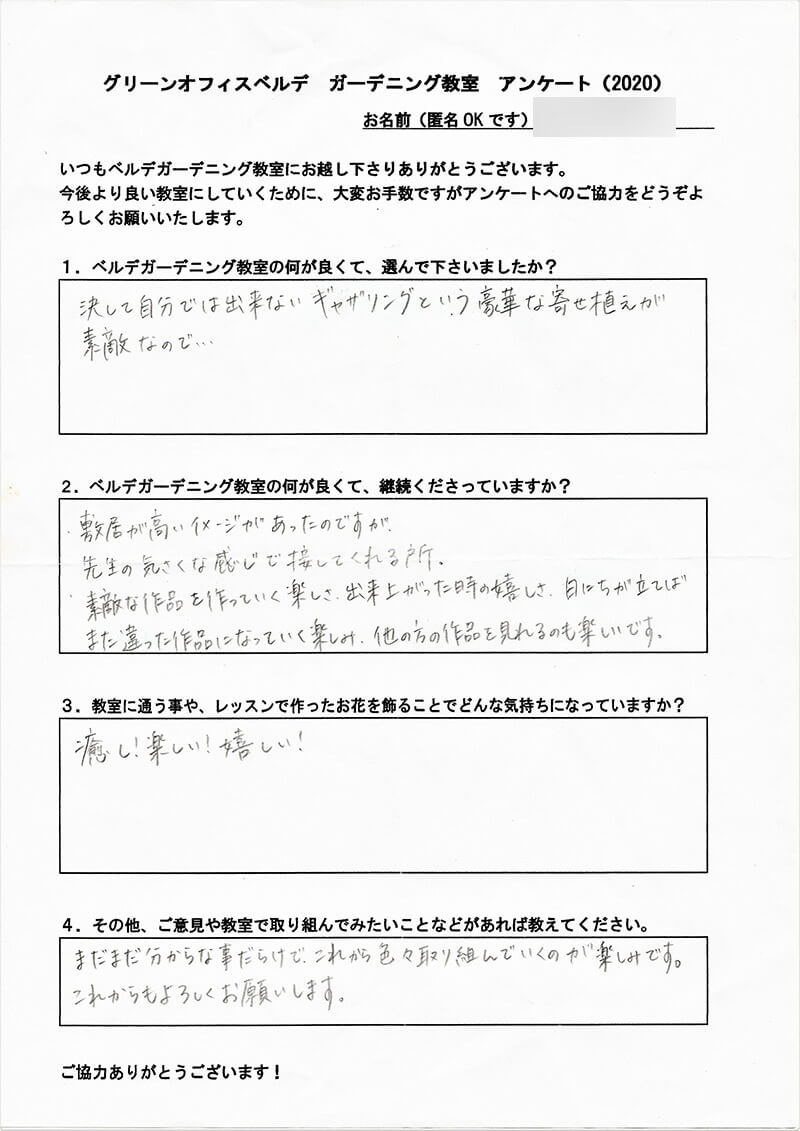 グリーンオフィスベルデ　ガーデニング教室　アンケート（2020）
お名前（匿名OKです）
いつもベルデガーデニング教室にお越し下さりありがとうございます。
今後より良い教室にしていくために、大変お手数ですがアンケートへのご協力をどうぞよ
ろしくお願いいたします。
１．ベルデガーデニング教室の何が良くて、選んで下さいましたか？
決して自分では出来ないギャザリングという豪華な寄せ植えが
素敵なので…
２．ベルデガーデニング教室の何が良くて、継続くださっていますか？
・敷居が高いイメージがあったのですが、
先生の気さくな感じで接してくれる所。
・素敵な作品を作っていく楽しさ、出来上がった時の嬉しさ、日にちが立てば
また違った作品になっていく楽しみ、他の方の作品を見れるのも楽しいです。
３．教室に通う事や、レッスンで作ったお花を飾ることでどんな気持ちになっていますか？
癒し！楽しい！嬉しい！
４．その他、ご意見や教室で取り組んでみたいことなどがあれば教えてください。
まだまだ分からな事だらけで、これから色々取り組んでいくのが楽しみです。
これからもよろしくお願いします。
ご協力ありがとうございます！